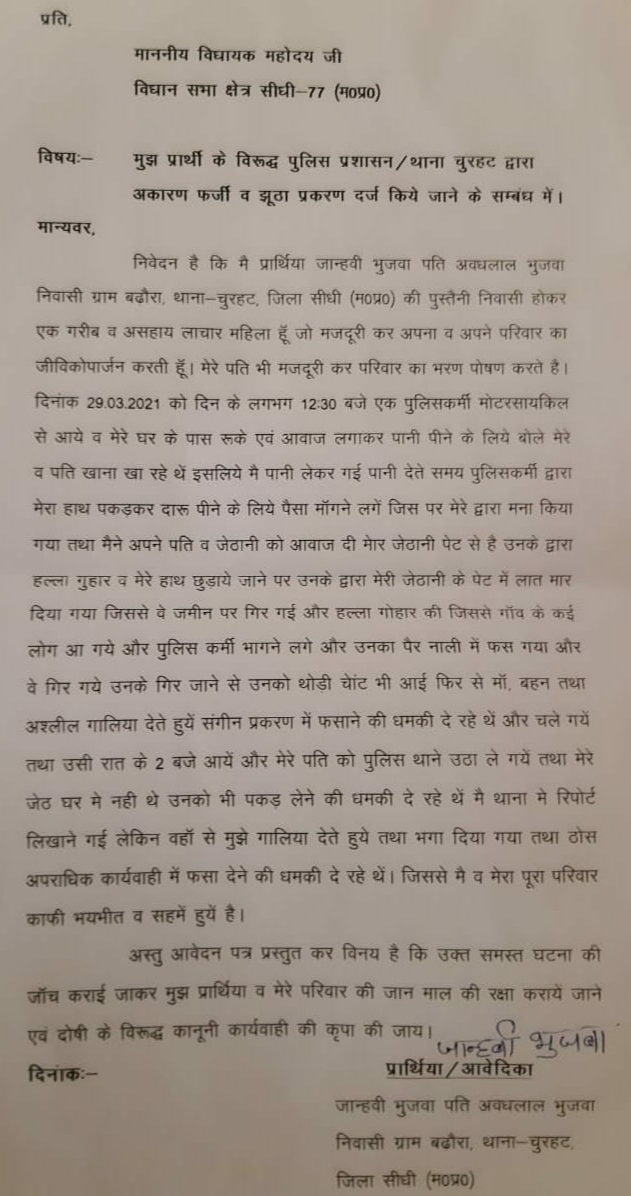 प्रति,
माननीय विधायक महोदय जी
विधान सभा क्षेत्र सीधी–77 (म0प्र0)
विषयः– मुझ प्रार्थी के विरूद्ध पुलिस प्रशासन/थाना चुरहट द्वारा
अकारण फर्जी व झूठा प्रकरण दर्ज किये जाने के सम्बंध में।
मान्यवर,
निवेदन है कि मै प्रार्थिया जान्हवी भुजवा पति अवधलाल भुजवा
निवासी ग्राम बढौरा, थाना–चुरहट, जिला सीधी (म0प्र0) की पुस्तैनी निवासी होकर
एक गरीब व असहाय लाचार महिला हूँ जो मजदूरी कर अपना व अपने परिवार का
जीविकोपार्जन करती हूँ। मेरे पति भी मजदूरी कर परिवार का भरण पोषण करते है।
दिनांक 29.03.2021 को दिन के लगभग 12:30 बजे एक पुलिसकर्मी मोटरसायकिल
से आये व मेरे घर के पास रूके एवं आवाज लगाकर पानी पीने के लिये बोले मेरे
व पति खाना खा रहे थें इसलिये मै पानी लेकर गई पानी देते समय पुलिसकर्मी द्वारा
मेरा हाथ पकड़कर दारू पीने के लिये पैसा मॉगने लगें जिस पर मेरे द्वारा मना किया
गया तथा मैने अपने पति व जेठानी को आवाज दी मेार जेठानी पेट से है उनके द्वारा
हल्ला गुहार व मेरे हाथ छुड़ाये जाने पर उनके द्वारा मेरी जेठानी के पेट में लात मार
दिया गया जिससे वे जमीन पर गिर गई और हल्ला गोहार की जिससे गॉव के कई
लोग आ गये और पुलिस कर्मी भागने लगे और उनका पैर नाली में फस गया और
वे गिर गये उनके गिर जाने से उनको थोड़ी चेांट भी आई फिर से मॉ, बहन तथा
अश्लील गालिया देते हुयें संगीन प्रकरण में फसाने की धमकी दे रहे थें और चले गयें
तथा उसी रात के 2 बजे आयें और मेरे पति को पुलिस थाने उठा ले गयें तथा मेरे
जेठ घर मे नही थे उनको भी पकड़ लेने की धमकी दे रहे थें मै थाना मे रिपोर्ट
लिखाने गई लेकिन वहॉ से मुझे गालिया देते हुये तथा भगा दिया गया तथा ठोस
अपराधिक कार्यवाही में फसा देने की धमकी दे रहे थें। जिससे मै व मेरा पूरा परिवार
काफी भयभीत व सहमें हुयें है।
अस्तु आवेदन पत्र प्रस्तुत कर विनय है कि उक्त समस्त घटना की
जॉच कराई जाकर मुझ प्रार्थिया व मेरे परिवार की जान माल की रक्षा करायें जाने
एवं दोषी के विरूद्ध कानूनी कार्यवाही की कृपा की जाय।
जान्हवी भुजवा
दिनांकः–
प्रार्थिया/आवेदिका
जान्हवी भुजवा पति अवधलाल भुजवा
निवासी ग्राम बढौरा, थाना–चुरहट,
जिला सीधी (म0प्र0)